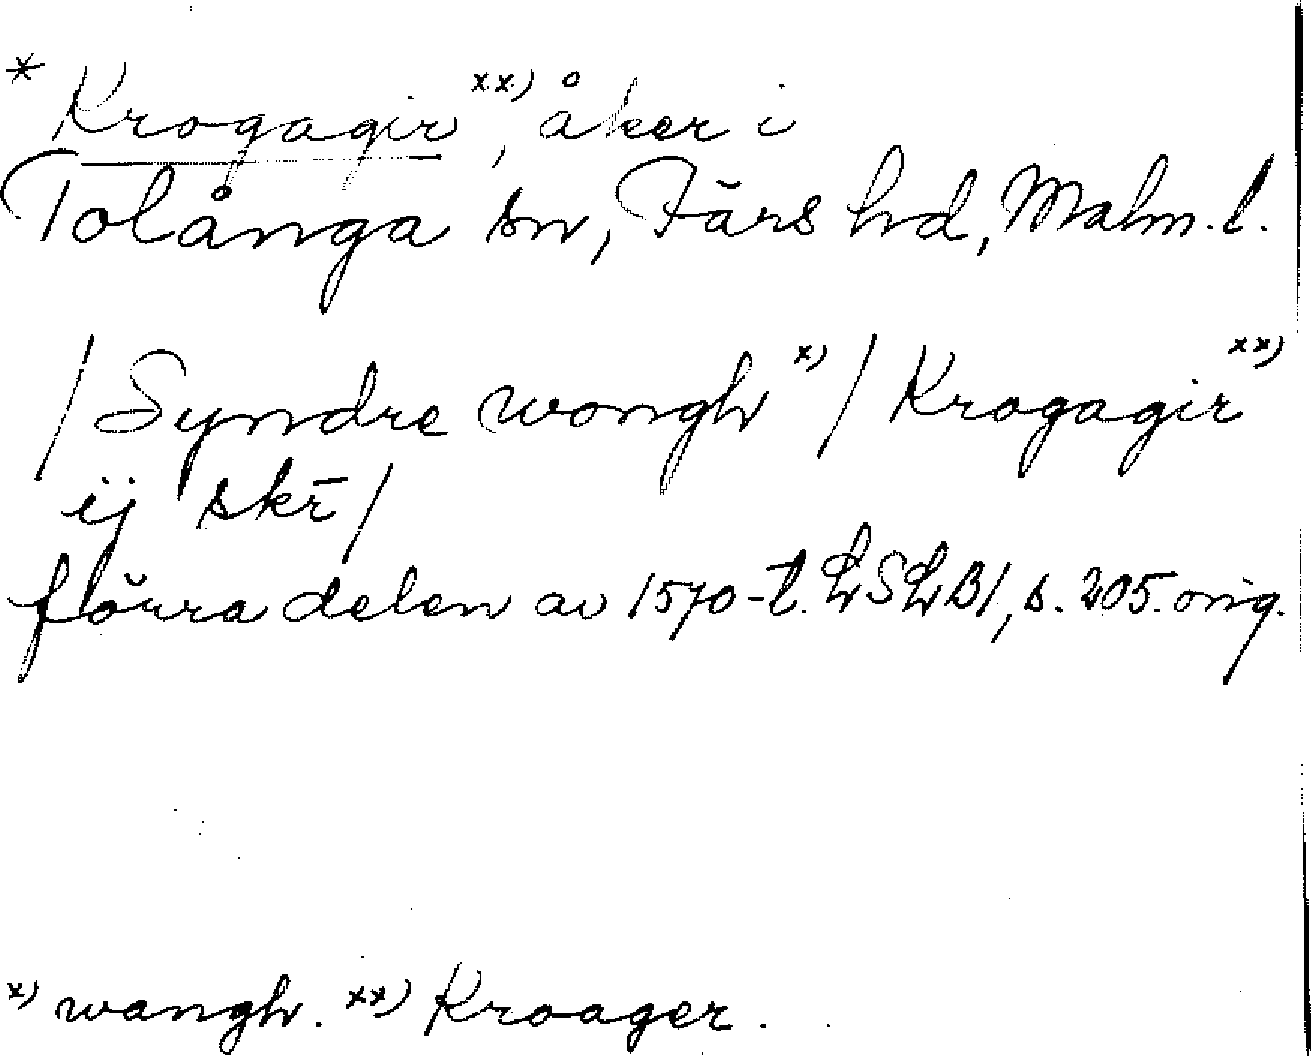 * Krogagir xx), åker i
Tolånga sn, Färs hd, Malm. l.
/Syndre wongh x) / Krogagir xx)
ij skr̄/
förra delen av 1570-t. LSLB1, s. 205. orig.
x) wangh. xx) Kroager.